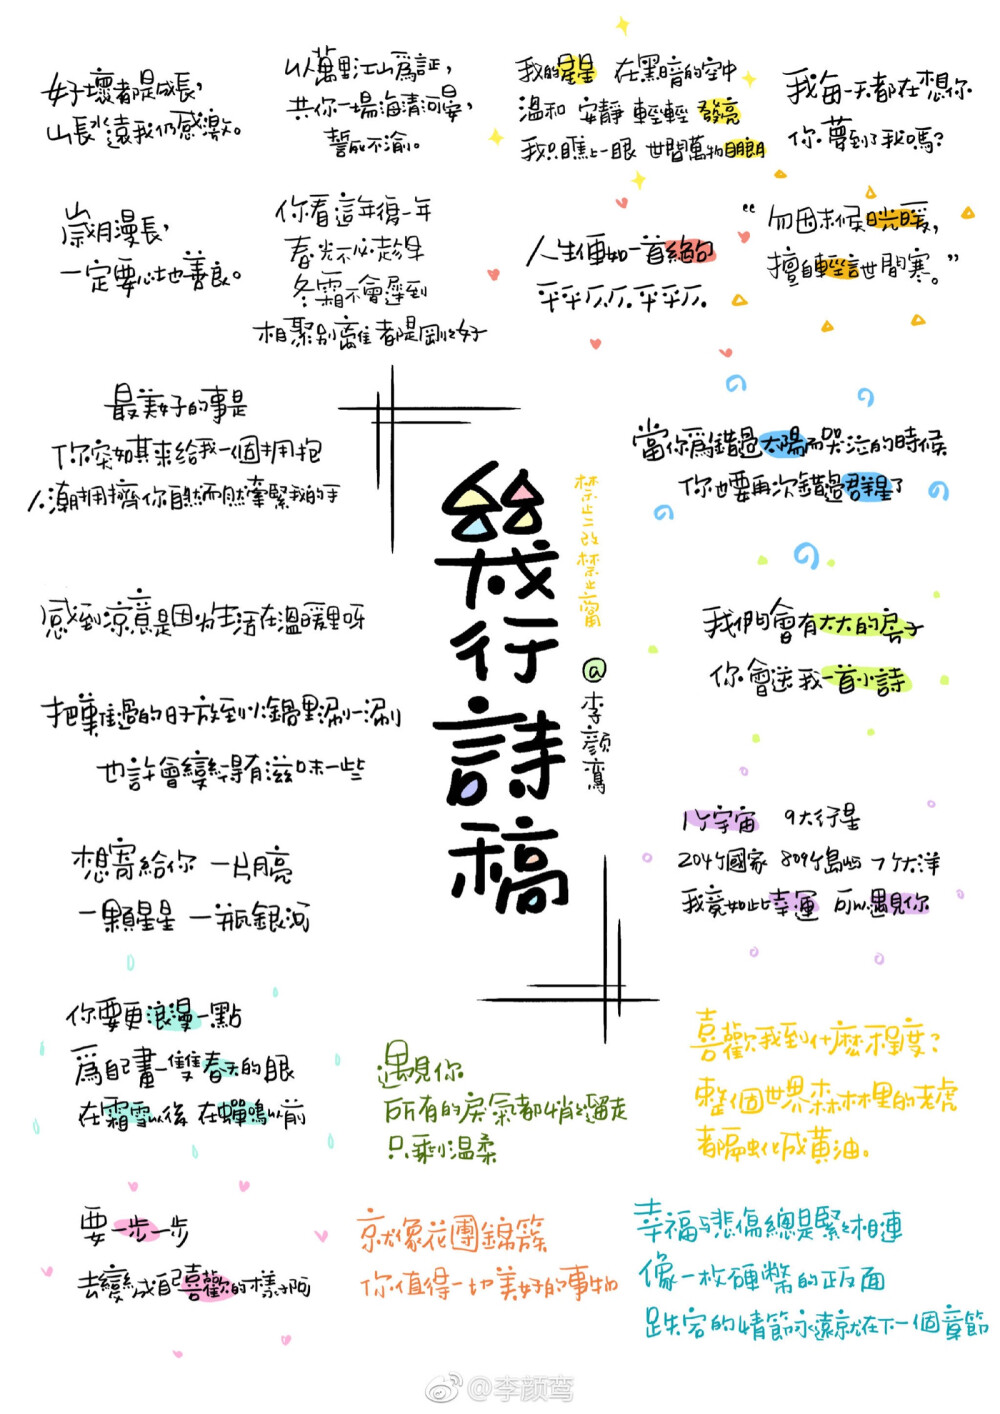 好壞都是成長，
山長水遠我仍感激。
以萬里江山為証，
共你一場海清河晏，
誓成不渝。
我的星星 在黑暗的空中
溫和 安靜 輕輕 發亮
我只瞧上一眼 世間萬物明朗
我每一天都在想你
你夢到了我嗎?
歲月漫長，
一定要心地善良。
你看這年復一年
春光不必趁早
冬霜不會遲到
相聚別離 都是剛好
人生便如一首絕句
平平仄仄.平平仄.
“勿因末候晄暖，
擅自輕言世間寒。”
最美好的事是
你突如其來給我一個擁抱
人潮擁擠你自然而然牽緊我的手
當你為錯過太陽而哭泣的時候
你也要再次錯過群星了
幾行詩稿
禁止二改禁止商
@李顏鸞
感到涼意是因为生活在溫暖里呀
我們會有大大的房子
你會送我一首小詩
把難過的日子放到火鍋里涮一涮
也許會變得有滋味一些
1个宇宙 9大行星
204个國家 809个島屿 7个大洋
我竟如此幸運 可以遇見你
想寄給你 一片月亮
一顆星星 一瓶銀河
你要更浪漫一點
為自己畫一雙春天的眼
在霜雪以後 在蟬鳴以前
遇見你
所有的戾氣都悄悄溜走
只剩溫柔
喜歡我到什麼程度?
整個世界森林里的老虎
都融化成黃油。
要一步一步
去變成自己喜歡的樣子啊
京就像花團錦簇
你值得一切美好的事物
幸福与悲傷總是緊緊相連
像一枚硬幣的正反面
跌宕的情節永遠就在下一個章節
@李颜鸾